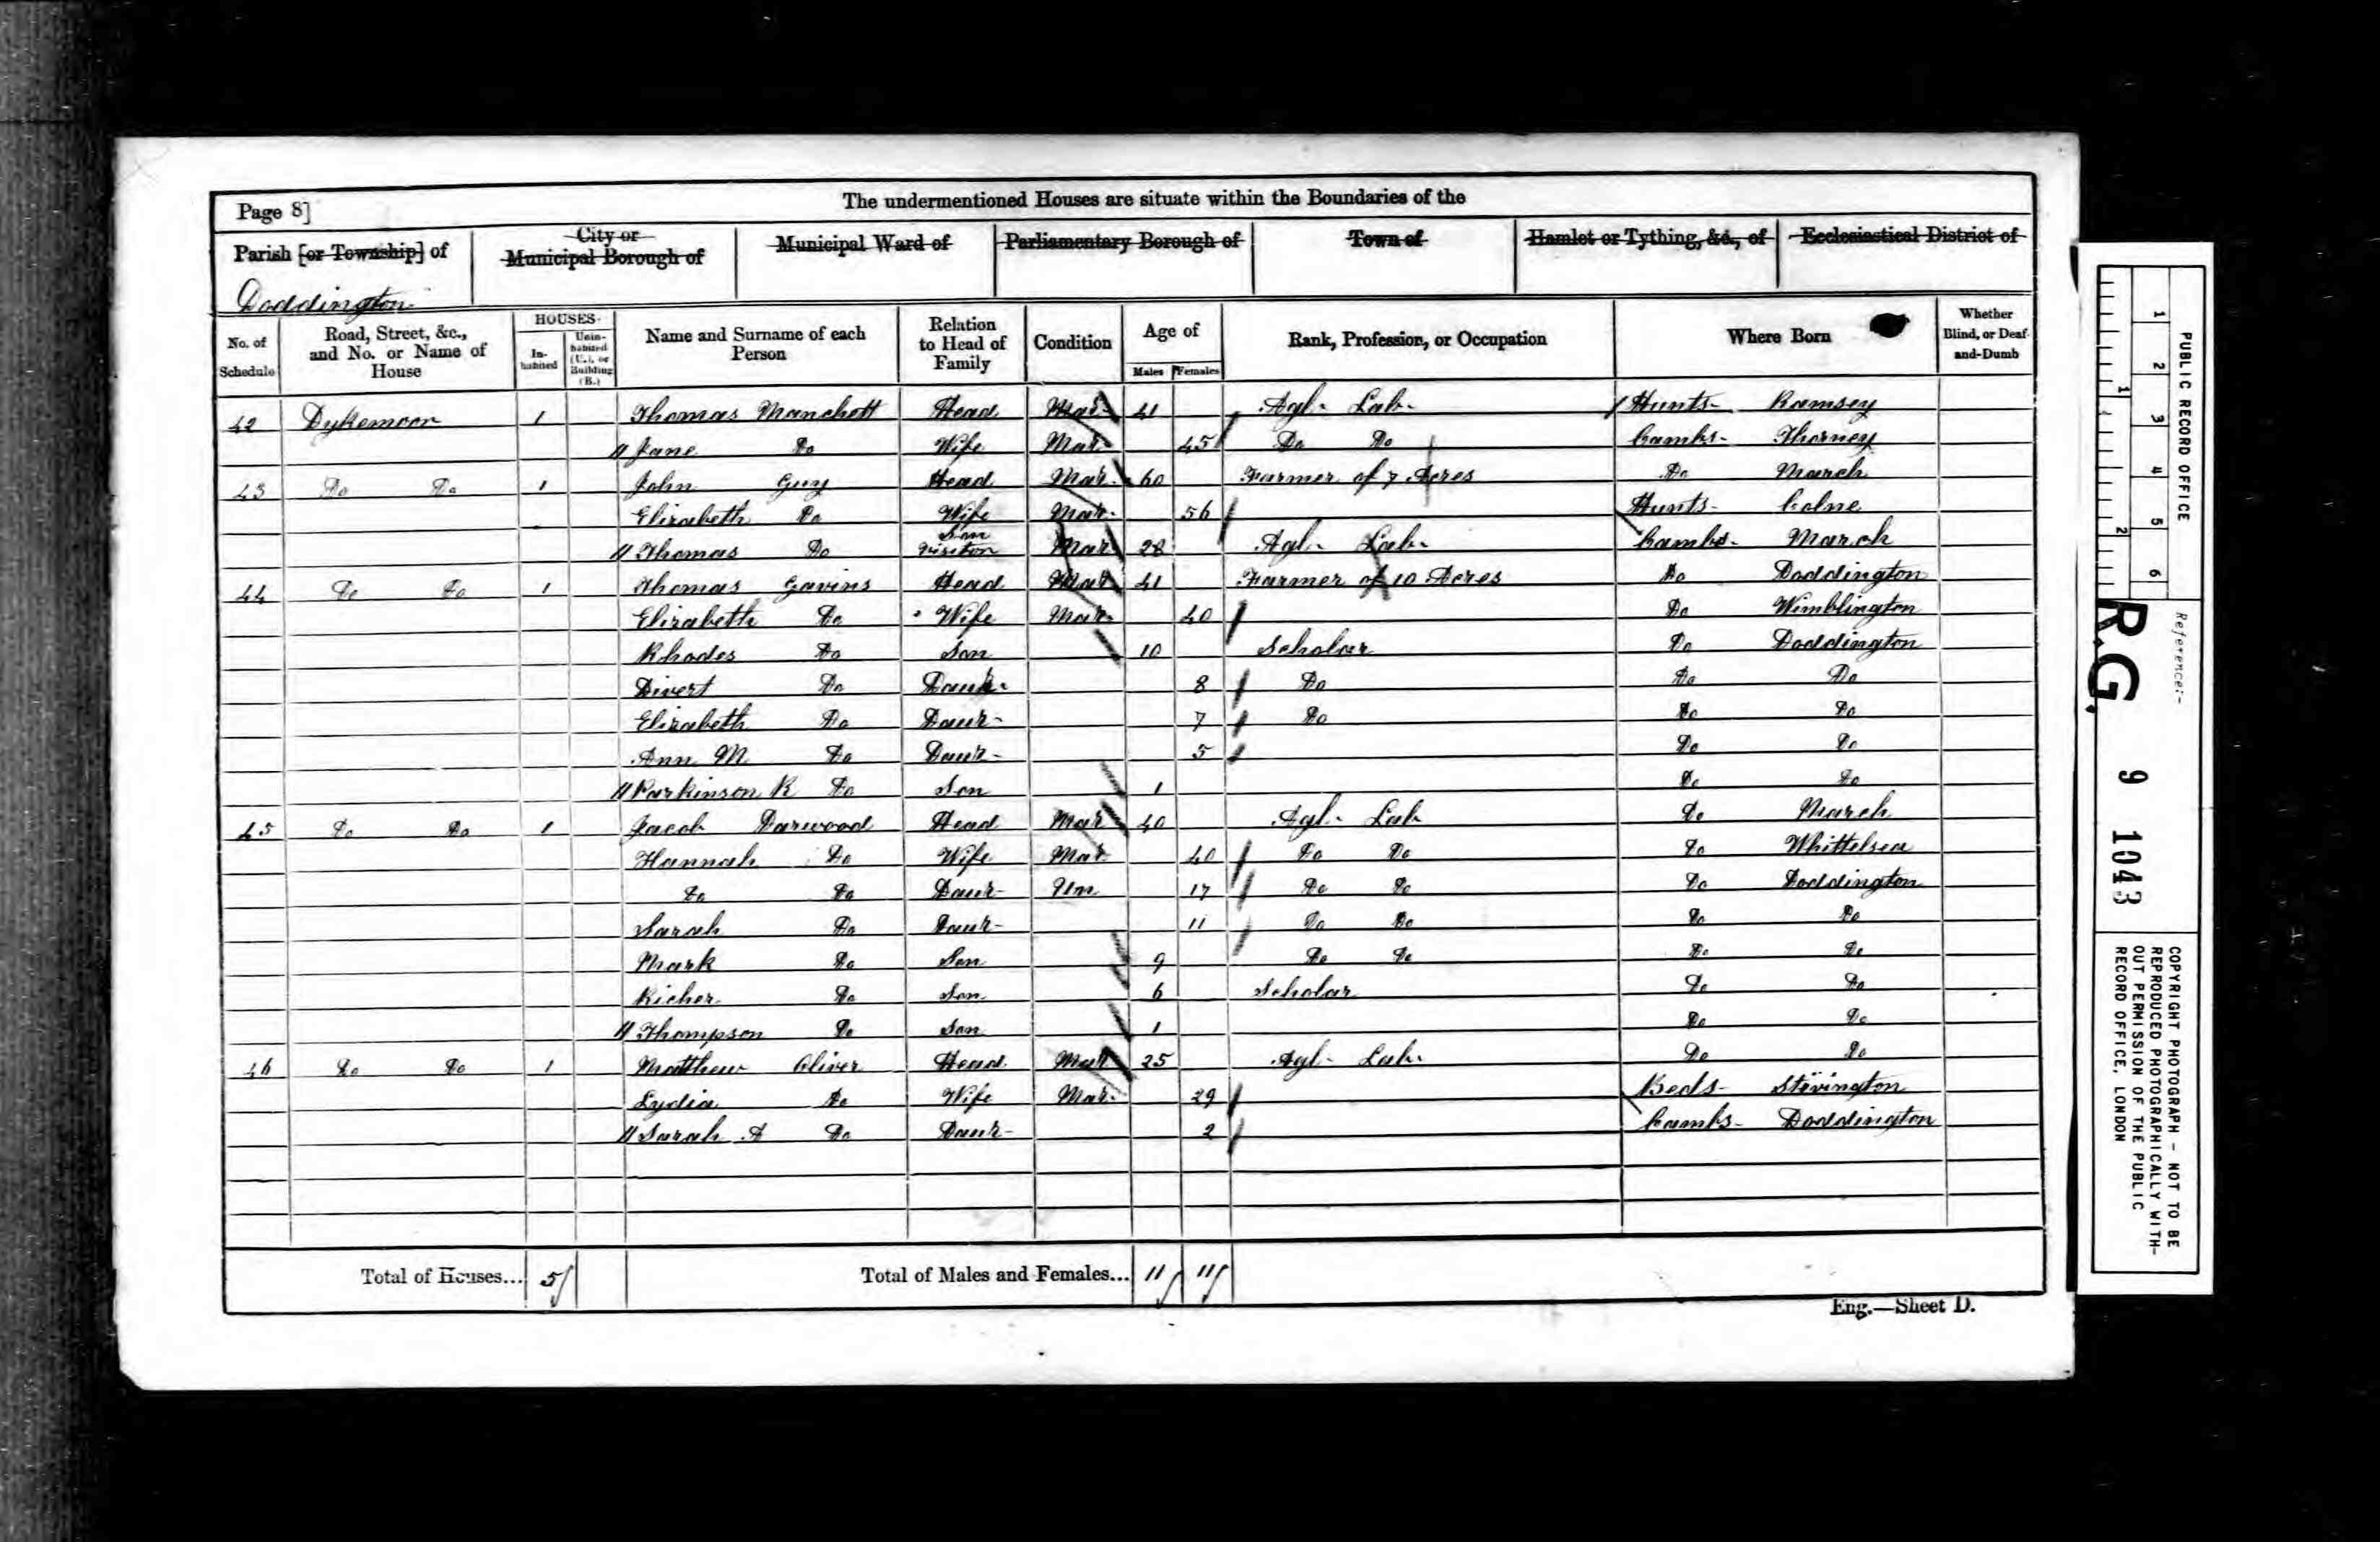 Page 8]
The undermentioned Houses are situate within the Boundaries of the
Parish [or Township] of
City or Municipal Borough of
Municipal Ward of
Parliamentary Borough of
Town of
Hamlet or Tything, &c., of
Ecclesiastical District of
Doddington
No. of Schedule
Road, Street, &c., and No. or Name of House
HOUSES
In-habited
Unin-habited (U.), or Building (B.)
Name and Surname of each Person
Relation to Head of Family
Condition
Age of
Males
Females
Rank, Profession, or Occupation
Where Born
Whether Blind, or Deaf-and-Dumb
42 Dykemoor 1 Thomas Manchett Head Mar 41 Agl. Lab. Hunts- Ramsey
Jane Do Wife Mar 45 Do Do Cambs- Thorney
43 Do Do 1 John Guy Head Mar. 60 Farmer of 7 Acres Do March
Elizabeth Do Wife Mar. 56 Hunts- Colne
Thomas Do Son Visitor Mar 28 Agl. Lab. Cambs- March
44 Do Do 1 Thomas Gavins Head Mar 41 Farmer of 10 Acres Do Doddington
Elizabeth Do Wife Mar. 40 Do Wimblington
Rhodes Do Son 10 Scholar Do Doddington
Divert Do Daur- 8 Do Do Do
Elizabeth Do Daur- 7 Do Do Do
Ann M Do Daur- 5 Do Do
Parkinson R Do Son 1 Do Do
45 Do Do 1 Jacob Darwood Head Mar 40 Agl. Lab Do March
Hannah Do Wife Mar 40 Do Do Do Whittelsea
Do Do Daur- Un 17 Do Do Do Doddington
Sarah Do Daur- 11 Do Do Do Do
Mark Do Son 9 Do Do Do Do
Richer Do Son 6 Scholar Do Do
Thompson Do Son 1 Do Do
46 Do Do 1 Matthew Oliver Head Mar 25 Agl- Lab. Do Do
Lydia Do Wife Mar. 29 Beds- Stevington
Sarah A Do Daur- 2 Cambs- Doddington
Total of Houses... 5
Total of Males and Females... 11 11
Eng.—Sheet D.
PUBLIC RECORD OFFICE
1 2 3 4 5 6
1 2
Reference:-
R.G. 9 1043
COPYRIGHT PHOTOGRAPH - NOT TO BE
REPRODUCED PHOTOGRAPHICALLY WITH-
OUT PERMISSION OF THE PUBLIC
RECORD OFFICE, LONDON